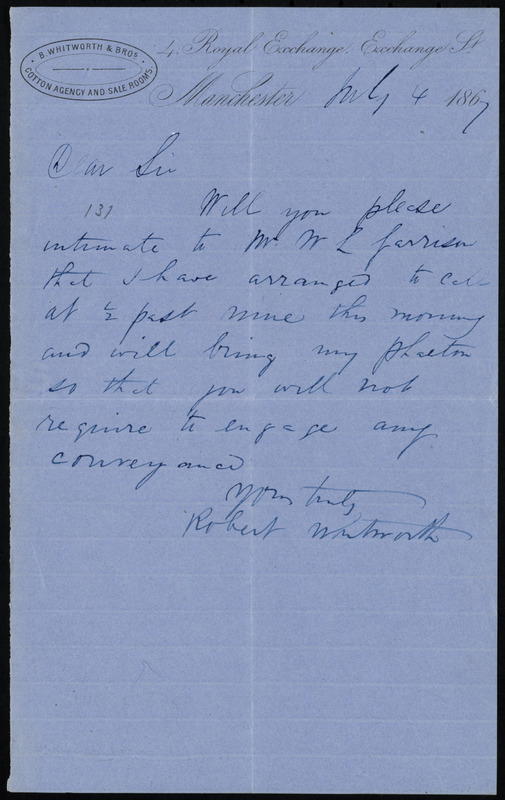 B. WHITWORTH & BROS
COTTON AGENCY AND SALE ROOMS
4, Royal Exchange, Exchange St
Manchester July 4 1867
Dear Sir
131 Will you please
intimate to Mr W L Garrison
that I have arranged to call
at ½ past nine this morning
and will bring my phaeton
so that you will not
require to engage any
conveyance
Yours truly
Robert Whitworth